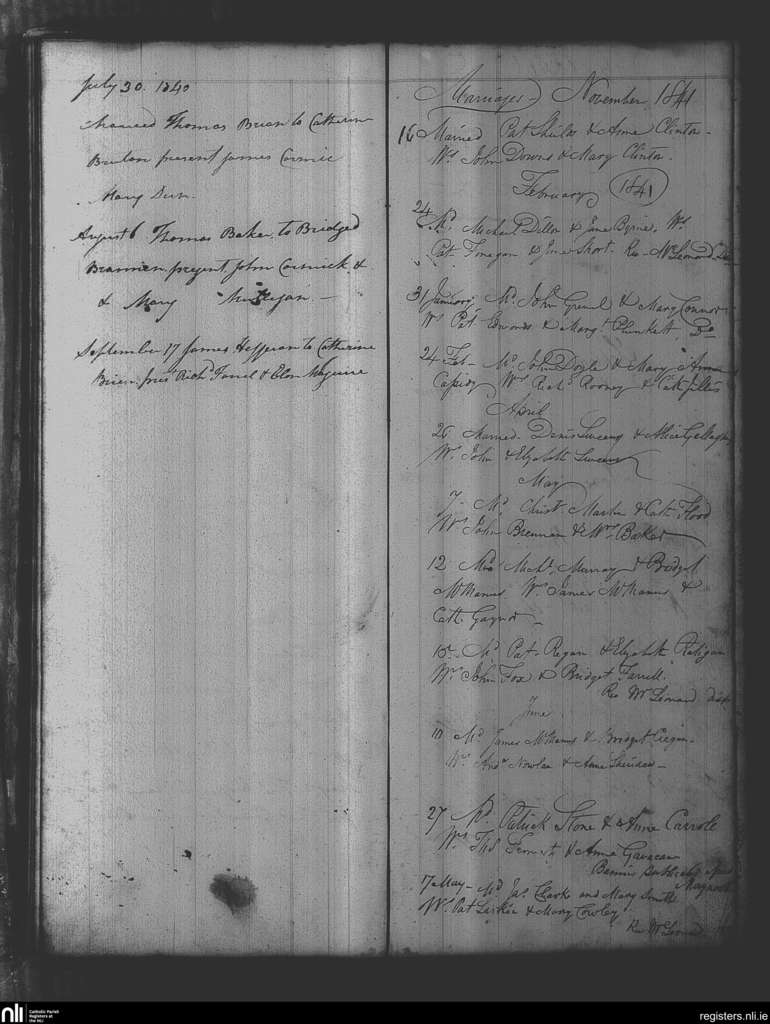 July 30. 1840
Married Thomas Brian to Catherin
present James Cormic
Mary Dun
August 6 Thomas Baker to Bridged
Brannen present John Cormick &
& Mary
September 17 James Heffernan to Catherine
Brien pres Richd Farrel & Elen Maguire
Marriages November 1841
16 Married Pat & Anne Clinton
Ws John Downs & Mary Clinton
February 1841
24 Md Michael Dillon & Jane Byrne, Ws
Pat Finegan & Jane Short. Rev Mr Leonard
31 January Md John & Mary Connor
Ws Pat Edwards & Margt Plunkett Do
24 Feb Md John Doyle & Mary Anne
Cassidy Ws Richd Rooney & Cath
April
26 Married Denis & Alice Gallagher
Ws John & Elizabeth
May
7 Md Christ Martin & Cath Flood
Ws John Brennan & Barker
12 Michl Murray & Bridget
McManus Ws James McManus &
Cath Gaynor
15 Md Pat Regan & Elizabeth Ratigan
Ws John Fox & Bridget Farrell
Rev Mr Leonard
June
10 Md James McManus & Bridget
Ws Andw Nowlan & Anne Sheridan
27 Md Patrick Stone & Anne Carrole
Ws & Anne Gavacan
17 May Md Jas Clarke and Mary Smith
Ws Pat Larkin & Mary Cowley
Rev Mr Leonard
nli
Catholic Parish
Registers at
the NLI
registers.nli.ie